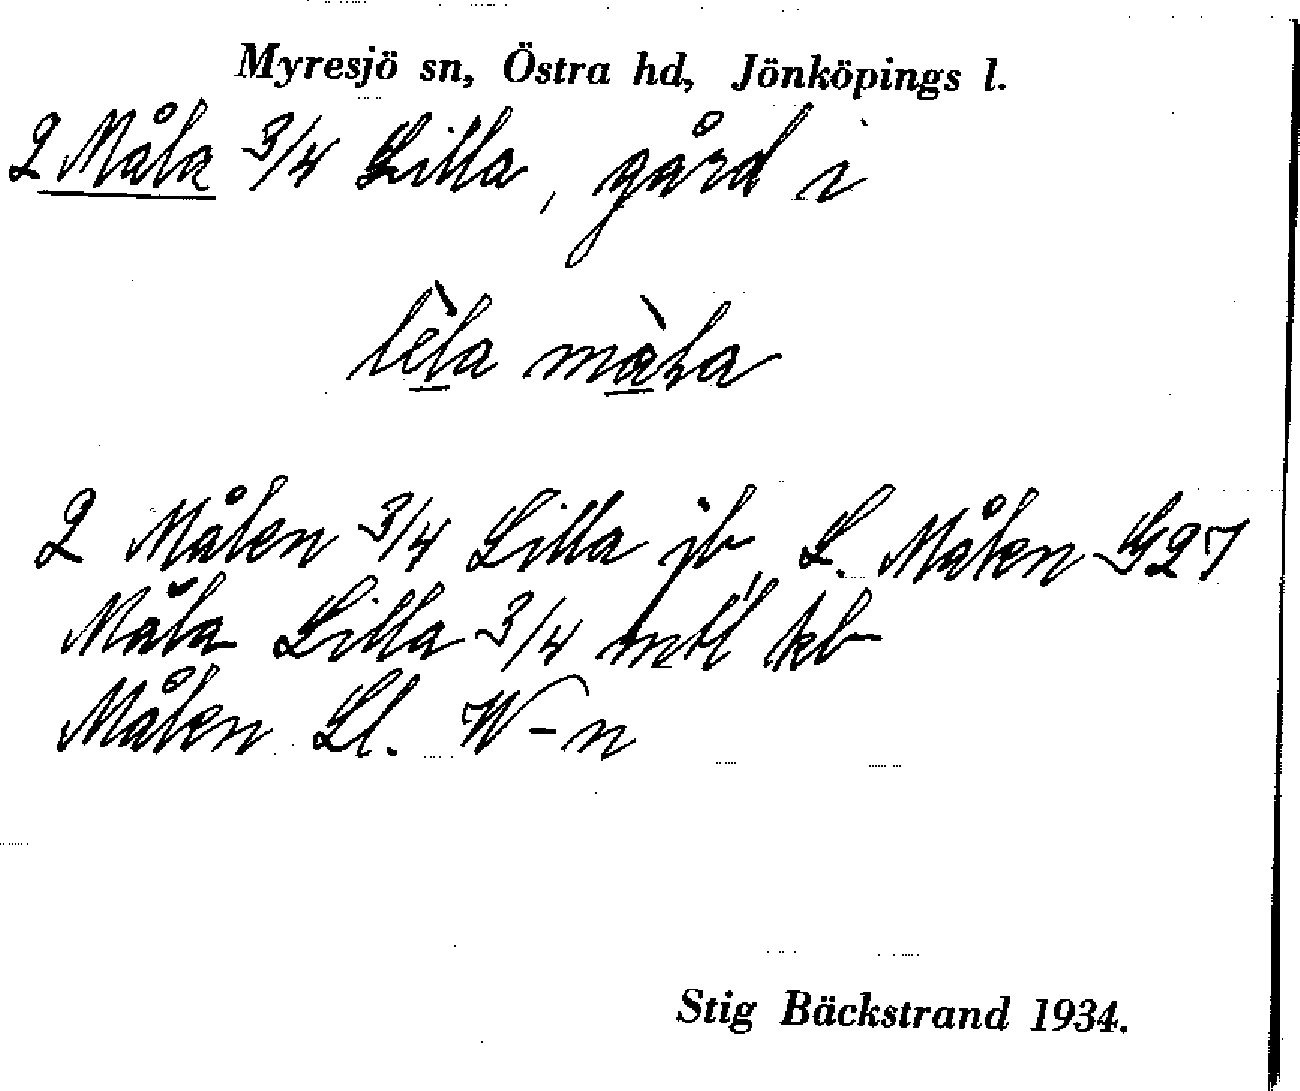 Myresjö sn, Östra hd, Jönköpings l.
2 Måla 3/4 Lilla, gård i
lèla màla
2 Målen 3/4 Lilla jb, L. Målen G27
Måla Lilla 3/4 mtl kb
Målen Ll. W-n
Stig Bäckstrand 1934.